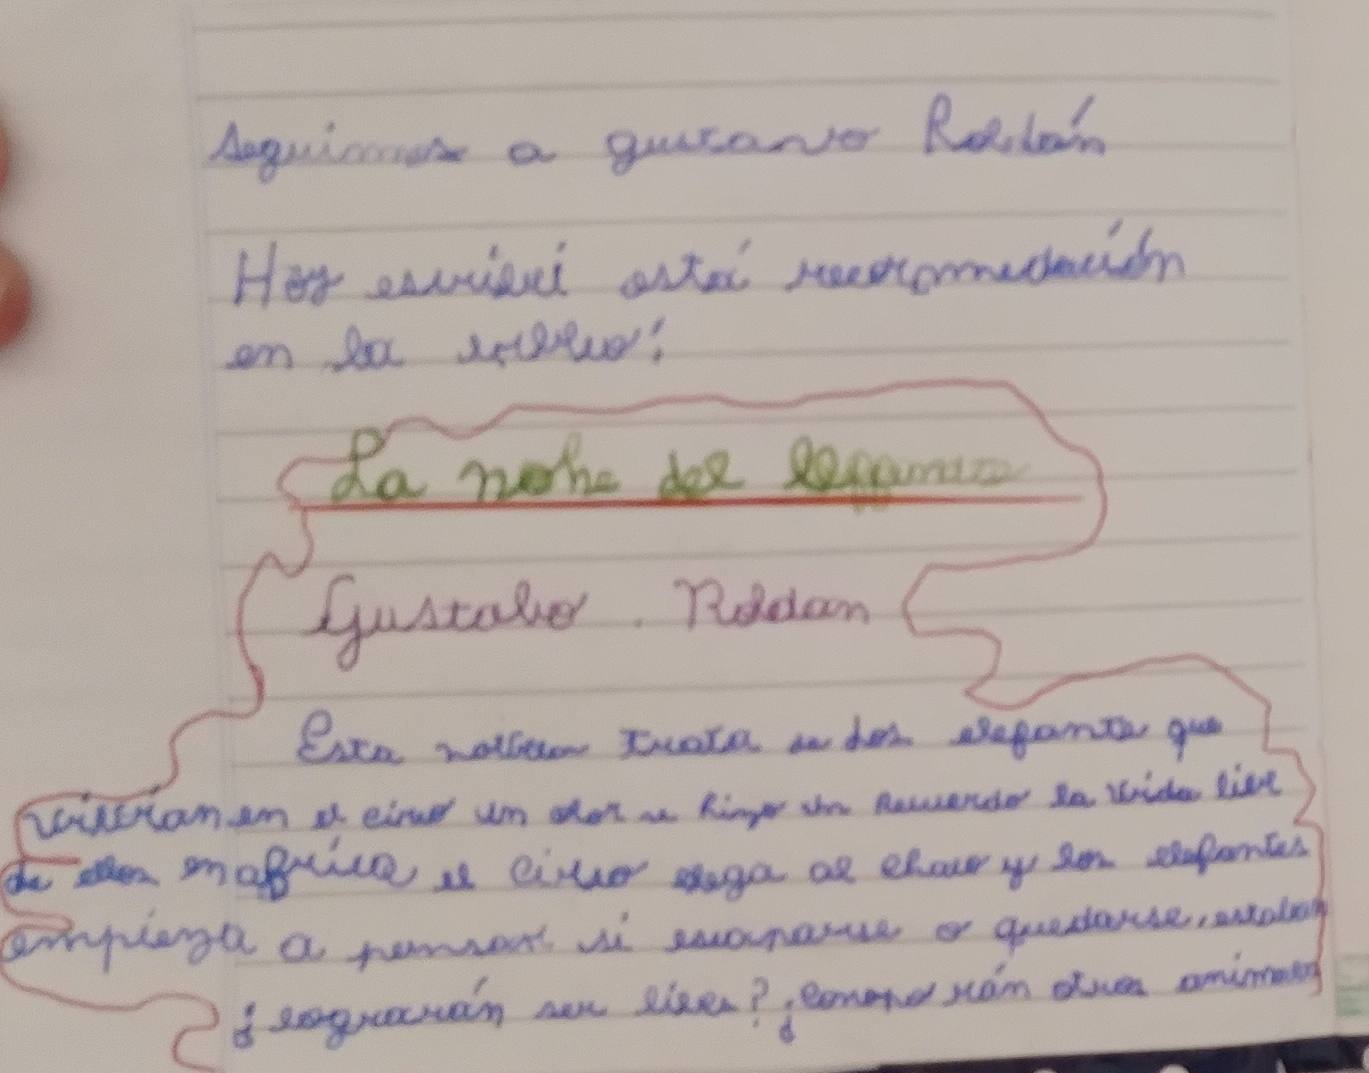 Seguimos a gustavo Roldán
Hoy escribí está recomendación
en la
La nohe del lefante
Gustabo. Roldan
Esta trata de dos elefante que
vivian en el circo un dia se hizo un recuerdo la vida libre
de ellos en africa el circo llega al chaco y los elefantes
empieza a pensar si escaparse o quedarse,
¿lograrán ser libres? ¿ otros animales